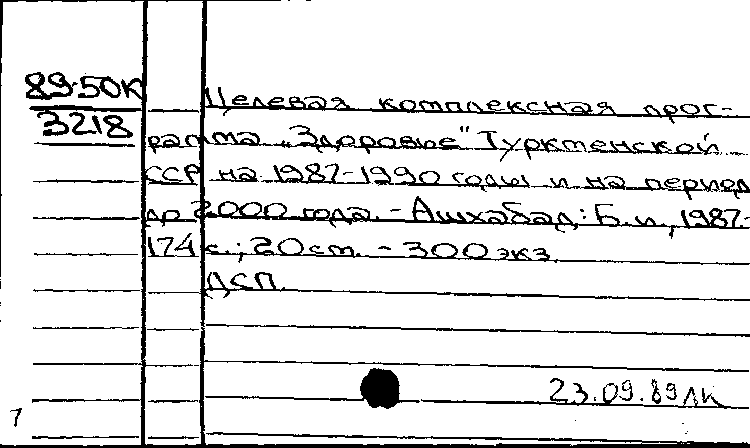 89-50К
3218
Целевая комплексная прог-
рамма „Здоровье" Туркменской
ССР на 1987-1990 годы и на период
до 2000 года. - Ашхабад: Б.и., 1987.-
174 с.; 20 см. - 300 экз.
ДСП.
23.09.89 ЛК
7